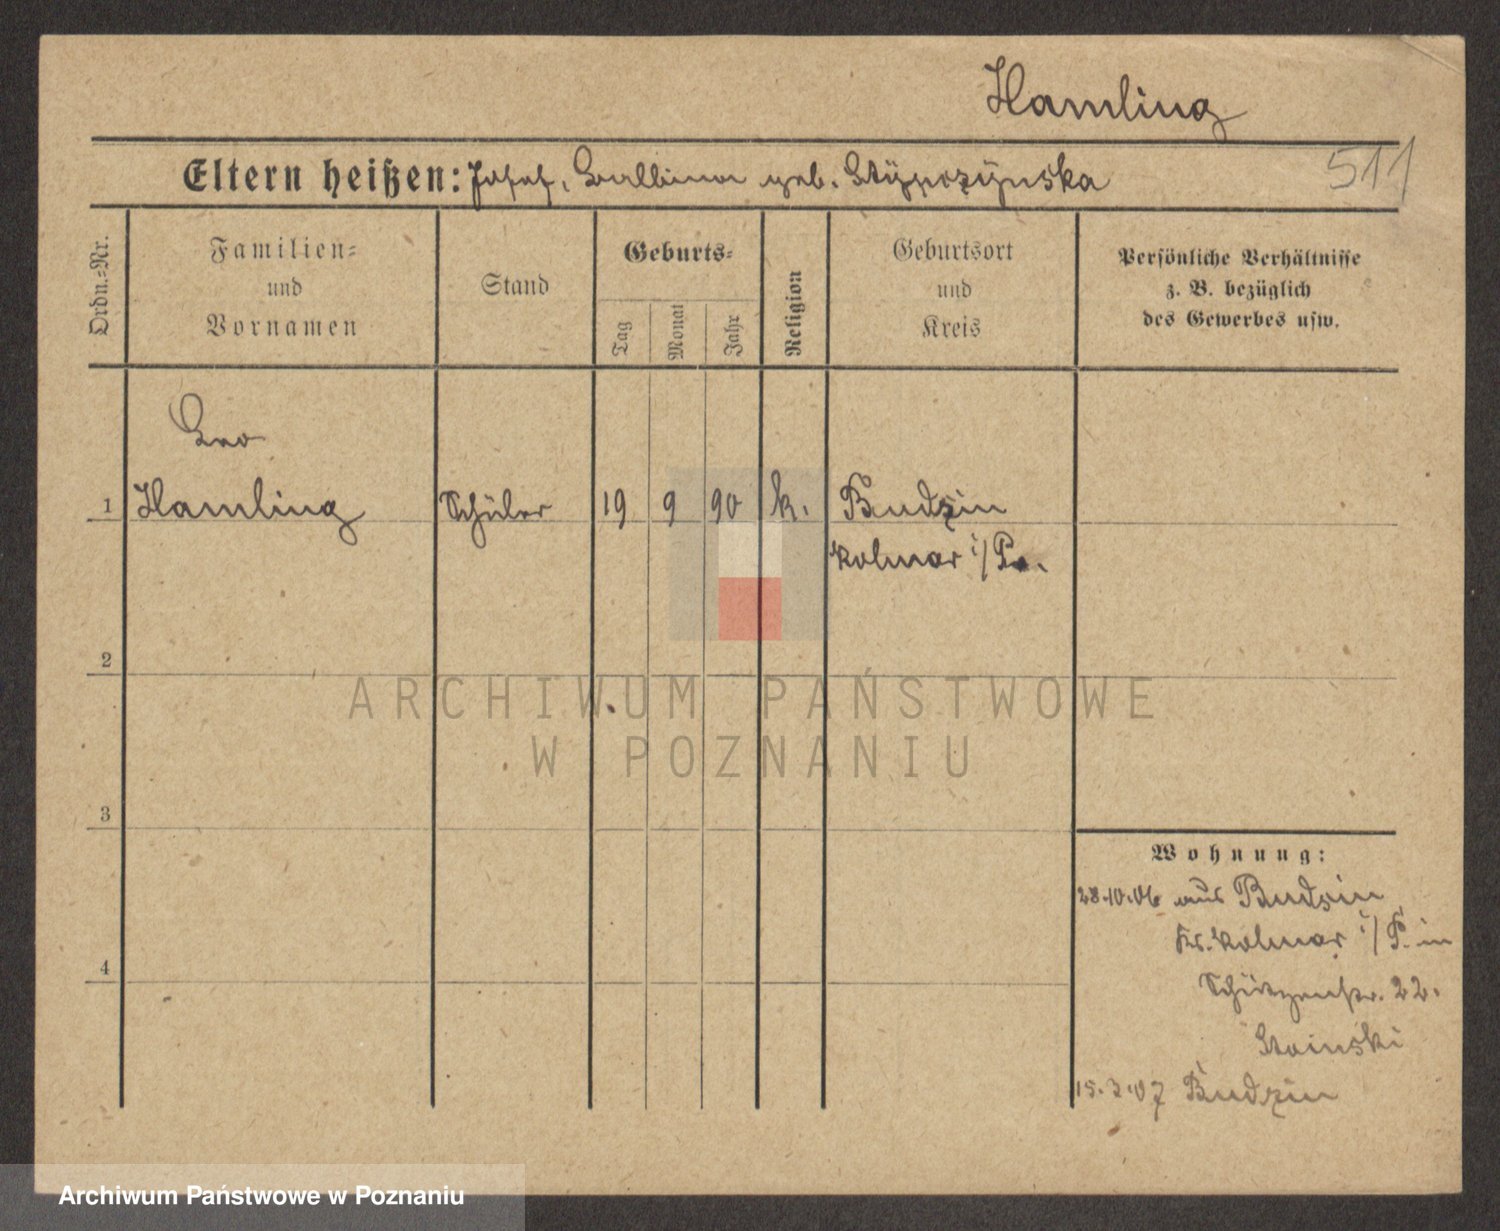 Hamling
511
Eltern heißen: Josef, Balbina geb. Stypczynska
Ordn.=Nr.
Familien=
und
Vornamen
Stand
Geburts=
Tag
Monat
Jahr
Religion
Geburtsort
und
Kreis
Persönliche Verhältnisse
z. B. bezüglich
des Gewerbes usw.
Leo
1 Hamling Schüler 19 9 90 k. Budzin
Kolmar i/Po.
2
ARCHIWUM PAŃSTWOWE
W POZNANIU
3
Wohnung:
28.10.06 aus Budzin
Kr. Kolmar i/P. in
4
Schützenstr. 22.
15.3.07 Budzin
Archiwum Państwowe w Poznaniu